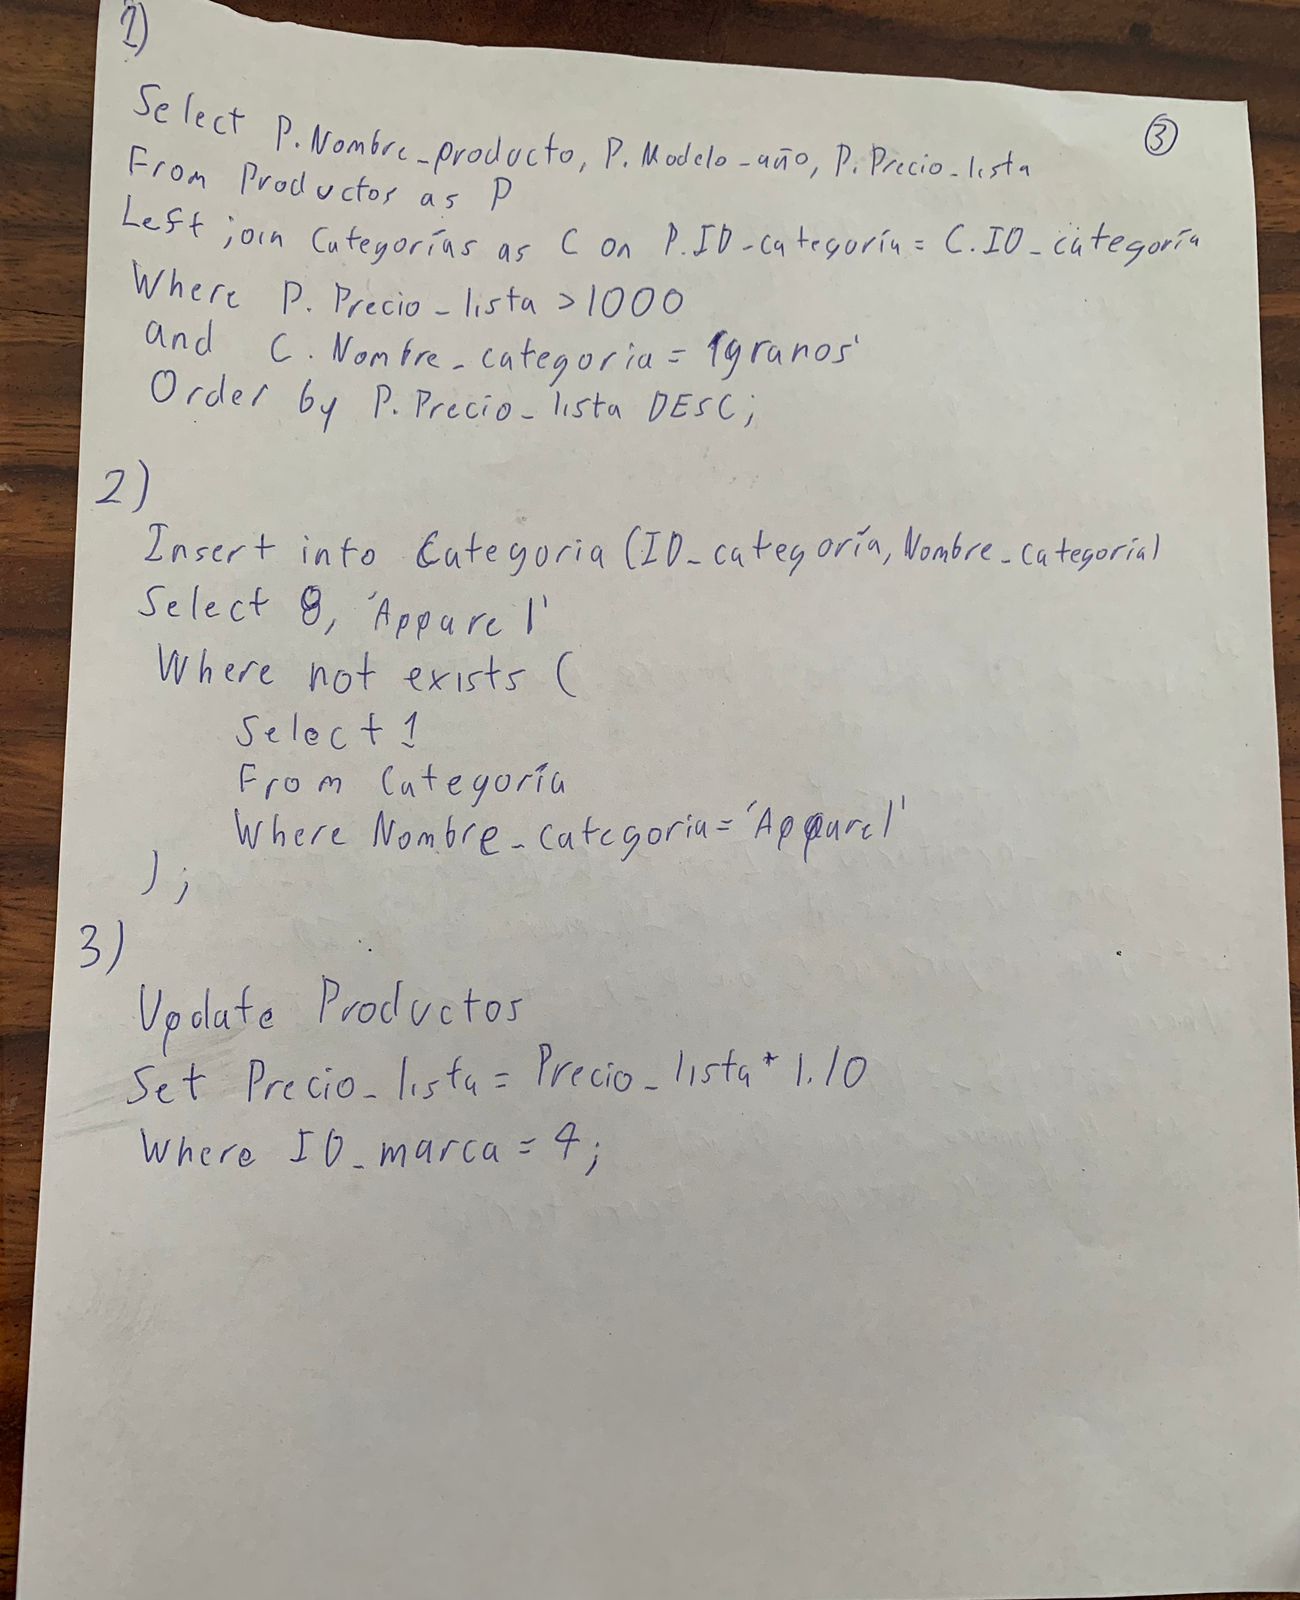 1)
③
Select P.Nombre_producto, P.Modelo_año, P.Precio_lista
From Productos as P
Left join Categorías as C on P.ID_categoría = C.ID_categoría
Where P.Precio_lista > 1000
and C.Nombre_categoria = 'granos'
Order by P.Precio_lista DESC;
2)
Insert into Categoria (ID_categoría, Nombre_categoria)
Select 8, 'Apparel'
Where not exists (
Select 1
From Categoría
Where Nombre_categoria = 'Apparel'
);
3)
Update Productos
Set Precio_lista = Precio_lista * 1.10
Where ID_marca = 4;